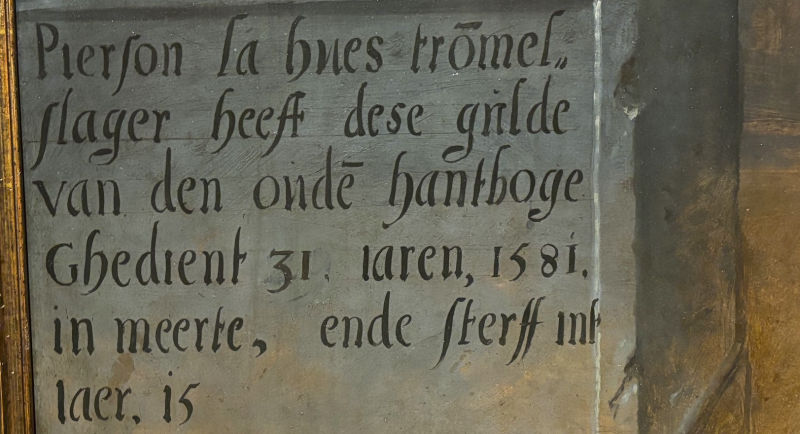 Pierson la hues trōmel„
slager heeft dese gulde
van den oudē hantboge
Ghedient 31. iaren, 1581.
in meerte, ende sterff int
iaer, 15